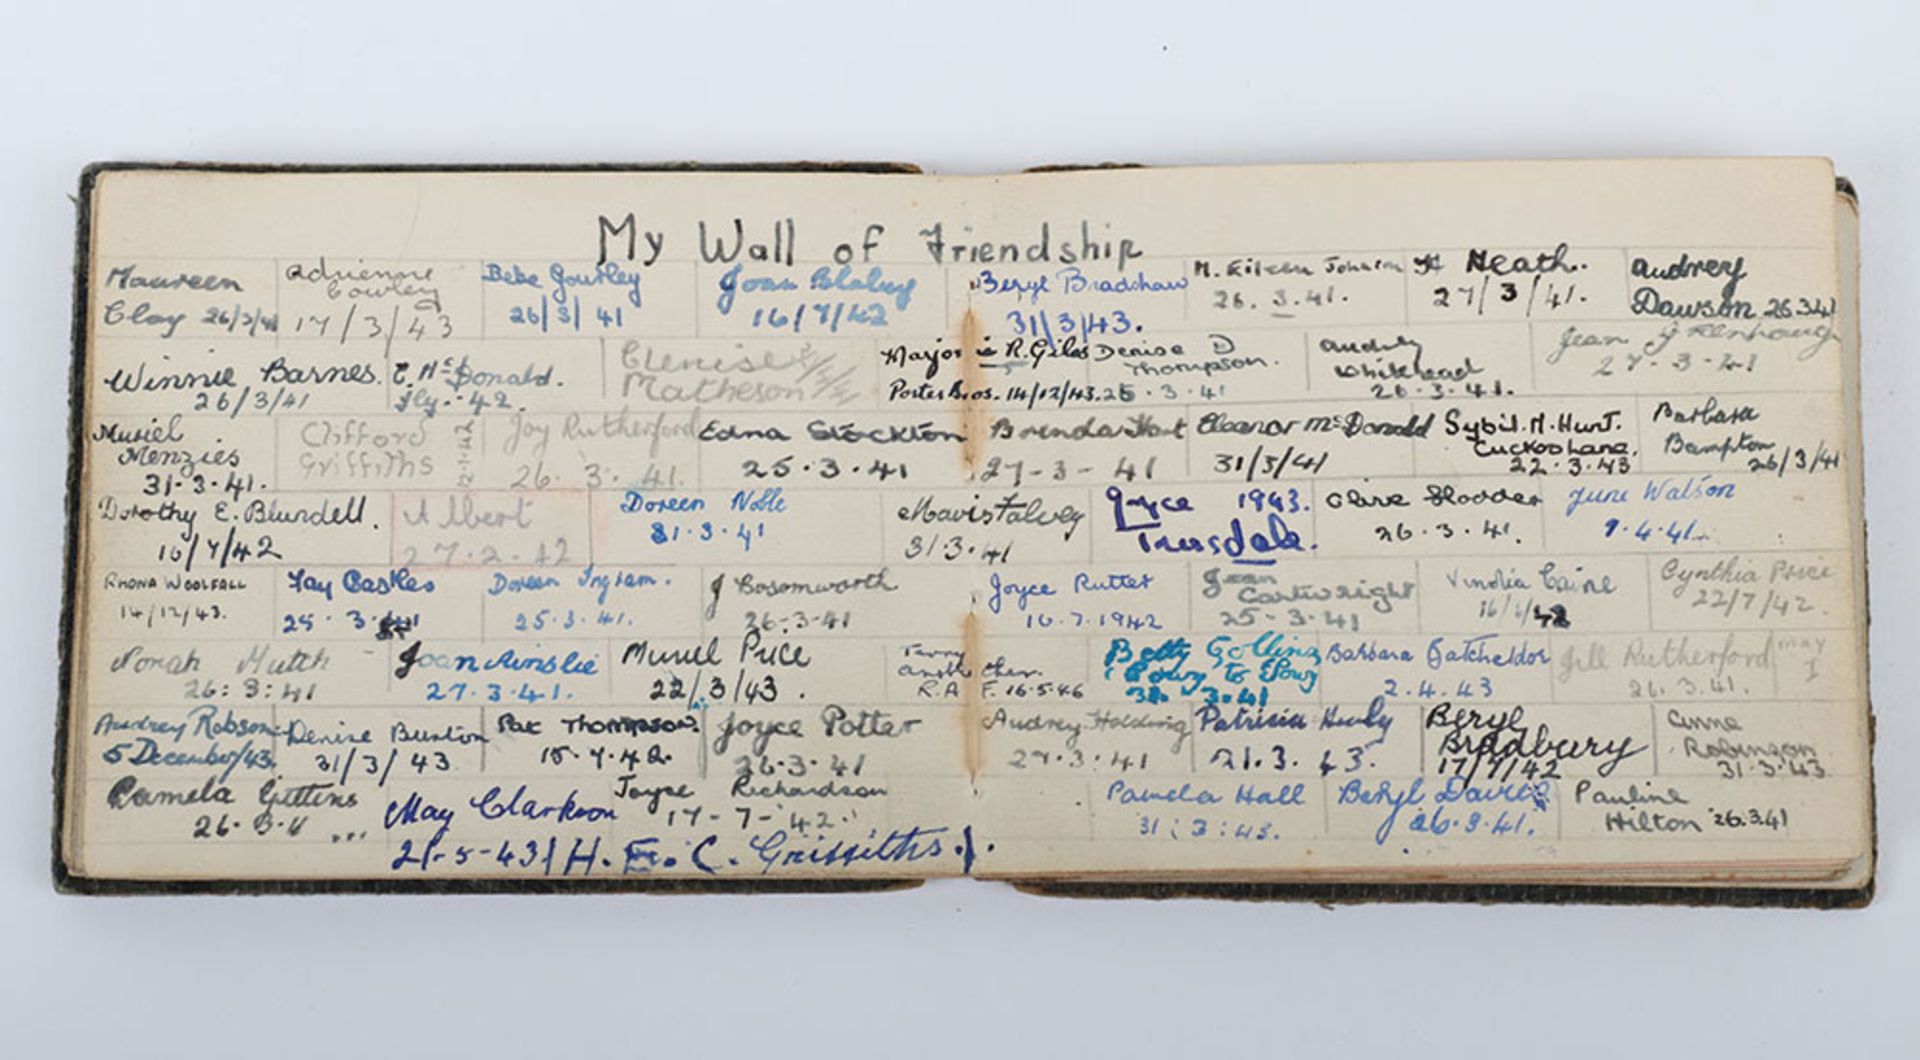 My Wall of Friendship
Maureen
Clay 26/3/41
Adrienne
Cowley
17/3/43
Bebe Gourley
26/3/41
Joan Blabey
16/7/42
Beryl Bradshaw
31/3/43.
M. Eileen Johnson
26.3.41.
Heath.
27/3/41.
Audrey
Dawson 26.3.41
Winnie Barnes.
26/3/41
E. McDonald.
Jly. 42.
Glenise
Matheson
Marjorie R. Giles
Porter Bros. 14/12/43.
Denise D
Thompson.
25.3.41
Audrey
Whitehead
26.3.41.
Jean
27.3.41
Muriel
Menzies
31.3.41.
Clifford
Griffiths
12.1.42
Joy Rutherford
26.3.41.
Edna Stockton
25.3.41
Brenda Hart
27-3-41
Eleanor McDonald
31/3/41
Sybil. M. Hunt.
Cuckoo Lane.
22.3.43
Barbara
Bampton
26/3/41
Dorothy E. Blundell.
16/7/42
Albert
27.2.42
Doreen Noble
31.3.41
Mavis Falvey
31.3.41
Joyce 1943.
Truesdale.
Clare Hodder
26.3.41.
June Watson
9.4.41.
Rhona Woolfall
14/12/43.
Fay Castles
25.3.41
Doreen Ingram.
25.3.41.
J Bosomworth
26-3-41
Joyce Rutter
16.7.1942
Joan
Cartwright
25-3-41
Caine
42
Cynthia Price
22/7/42.
Norah Hutch
26:3:41
Joan Ainslie
27.3.41.
Muriel Price
22/3/43.
Terry
R.A.F. 16.5.46
Betty Golling
3.41
Barbara Batcheldor
2.4.43
Jill Rutherford
26.3.41.
May
1
Audrey Robson
5 December/43.
Denise Burton
31/3/43
Pat Thompson.
15.7.42.
Joyce Potter
26.3.41
Audrey Holding
27.3.41
Patricia Healy
21.3.43.
Beryl
Bradbury
17/7/42
Anne
Robinson
31.3.43
Pamela Gittins
26.3.41
May Clarkson
21-5-43
Joyce Richardson
17-7-42.
H. E. C. Griffiths.
Pamela Hall
31:3:43.
Beryl Davies
26.3.41.
Pauline
Hilton 26.3.41